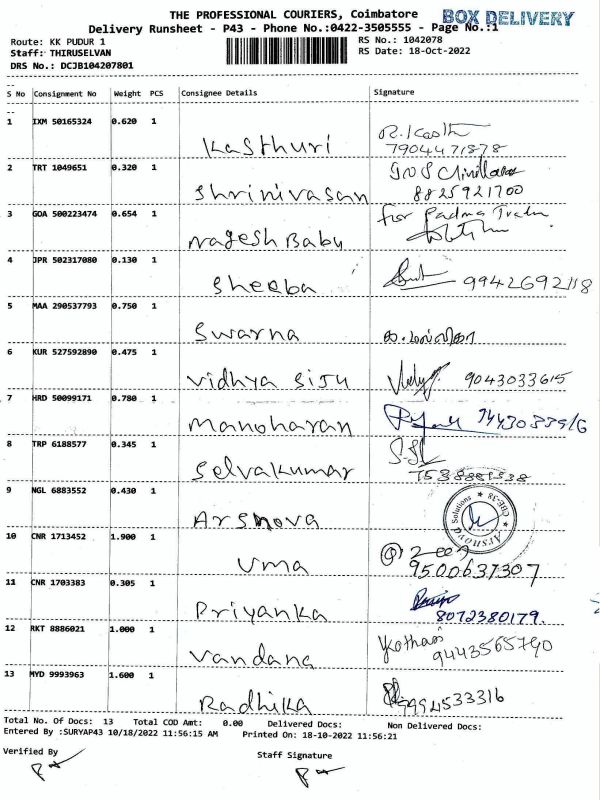 THE PROFESSIONAL COURIERS, Coimbatore
BOX DELIVERY
Delivery Runsheet - P43 - Phone No.:0422-3505555 - Page No.:1
Route: KK PUDUR 1
RS No.: 1042078
Staff: THIRUSELVAN
RS Date: 18-Oct-2022
DRS No.: DCJB104207801
S No Consignment No Weight PCS Consignee Details Signature
1 IXM 50165324 0.620 1
Kasthuri
R.Kasth
7904471878
2 TRT 1049651 0.320 1
Shrinivasan
8825921700
3 GOA 500223474 0.654 1
Nagesh Babu
for Padma
4 JPR 502317080 0.130 1
Sheeba
9942692118
5 MAA 290537793 0.750 1
Swarna
6 KUR 527592890 0.475 1
Vidhya Siju
9043033615
7 HRD 50099171 0.780 1
Manoharan
8 TRP 6188577 0.345 1
Selvakumar
9 NGL 6883552 0.430 1
Arsnova
Arsnova Solutions * CBE-38 *
10 CNR 1713452 1.900 1
Uma
9500637307
11 CNR 1703383 0.305 1
Priyanka
8072380179.
12 RKT 8886021 1.000 1
Vandana
9443565790
13 MYD 9993963 1.600 1
Radhika
9994533316
Total No. Of Docs: 13 Total COD Amt: 0.00 Delivered Docs: Non Delivered Docs:
Entered By :SURYAP43 10/18/2022 11:56:15 AM Printed On: 18-10-2022 11:56:21
Verified By
Staff Signature